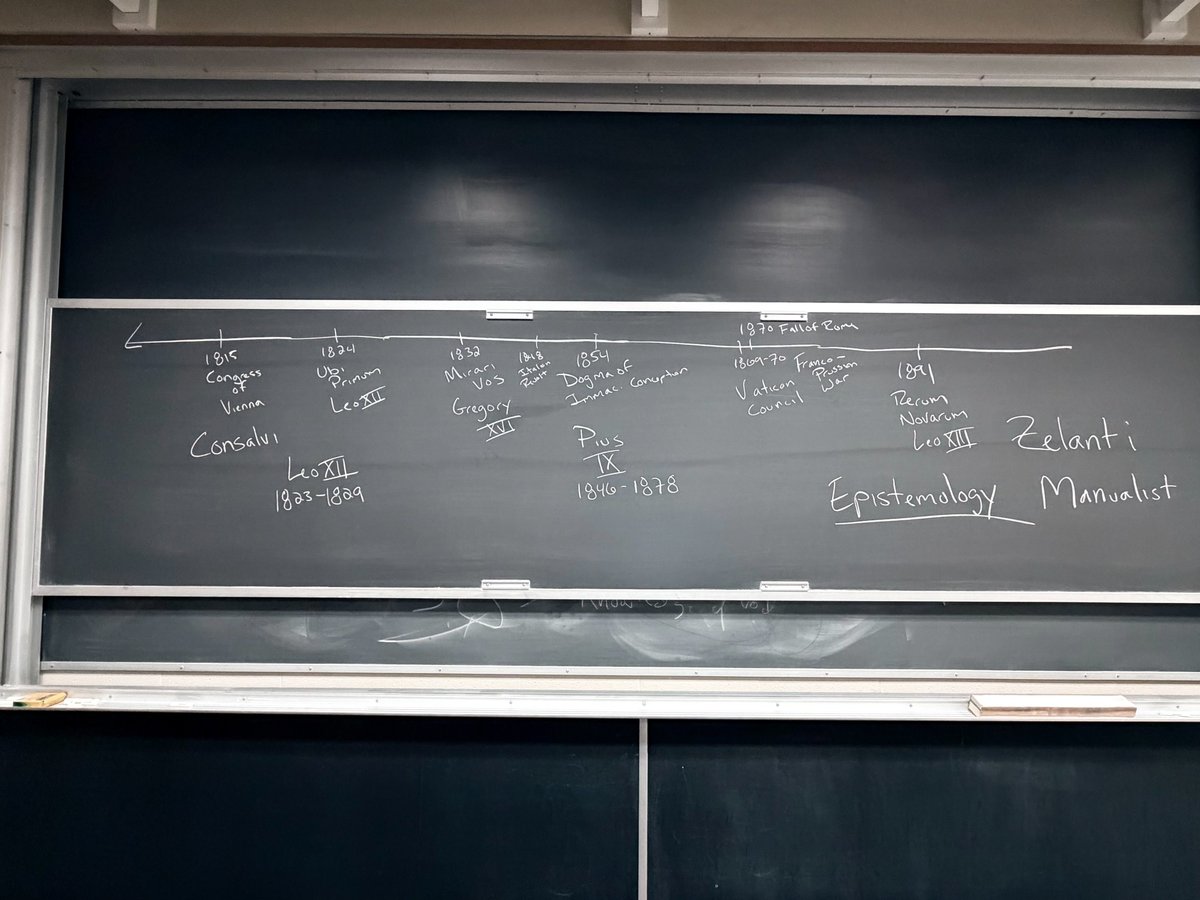 1870 Fall of Rome
1815
Congress
of
Vienna
Consalvi
1824
Ubi
Primum
Leo XII
Leo XII
1823-1829
1832
Mirari
Vos
Gregory
XVI
1848
Italian
Revolt
1854
Dogma of
Immac. Conception
Pius
IX
1846-1878
1869-70
Vatican
Council
Franco-
Prussian
War
1891
Rerum
Novarum
Leo XIII
Zelanti
Epistemology Manualist